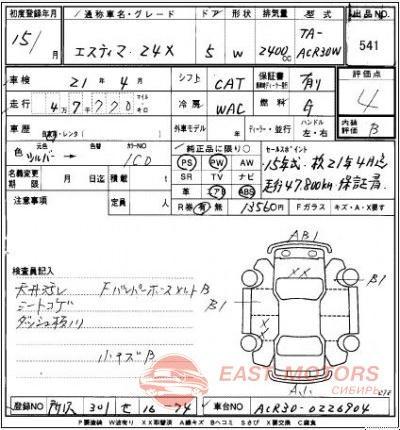 初度登録年月 通称車名・グレード ドア 形状 排気量 型式 出品No.
15/ エスティマ 24X 5 W 2400cc TA-ACR30W 541
車検 21年4月 シフト CAT 保証書 有り 評価点
走行 4万7770 キロ 冷房 WAC 燃料 G 4
車歴 自家用・レンタ 外車モデル ディーラー・並行 ハンドル 左・右 内装評価 B
色 元色 シルバー → 色替 カラーNO 1C0
純正品に限り○ セールスポイント
PS PW AW
SR TV ナビ
革 エアB ABS
15年式、検21年4月迄
走行47,800km 保証書
名義変更期限 月 日迄 積載量 t 乗車定員 人
注意事項 R券 有 無 13560円 Fガラス キズ・A・X要す
検査員記入
天井ヨゴレ FバンパーホースメントB
シートコゲ
ダッシュ板川
小キズB
AB1
XX
B1
B1
A1
EAST MOTORS
СИБИРЬ
登録No. 所沢 301 せ 16-74 車台No. ACR30-0226904
P要塗装 W波有り XX取替済 A線キズ Bヘコミ Sさび X要交換 C腐食